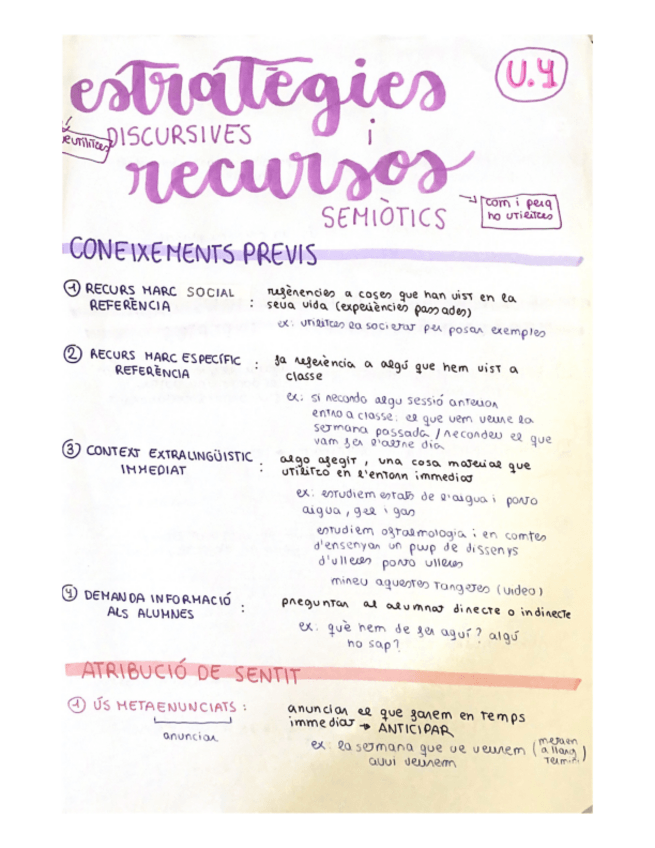 estratègies
U.4
DISCURSIVES i
recursos
SEMIÒTICS
com i perq
ho utilitzes
CONEIXEMENTS PREVIS
1 RECURS MARC SOCIAL
REFERÈNCIA :
referències a coses que han vist en la
seva vida (experiències passades)
ex: utilitzes la societat per posar exemples
2 RECURS MARC ESPECÍFIC
REFERÈNCIA :
fa referència a algú que hem vist a
classe
ex: si recordo algu sessió anterior
entro a classe: el que vem veure la
semana passada / recordeu el que
vam fer l'altre dia
3 CONTEXT EXTRALINGÜISTIC
IMMEDIAT :
algo afegit, una cosa material que
utilitzo en l'entorn immediat
ex: estudiem estats de l'aigua i porto
aigua, gel i gas
estudiem oftalmologia i en comtes
d'ensenyar un pwp de dissenys
d'ulleres porto ulleres
mireu aquestes targetes (video)
4 DEMANDA INFORMACIÓ
ALS ALUMNES :
preguntar al alumnat directe o indirecte
ex: què hem de fer aquí? algú
ho sap?
ATRIBUCIÓ DE SENTIT
1 ÚS METAENUNCIATS :
anunciar
anunciar el que farem en temps
immediat → ANTICIPAR
ex: la setmana que ve veurem (metaen
a llarg
termini)
avui veurem